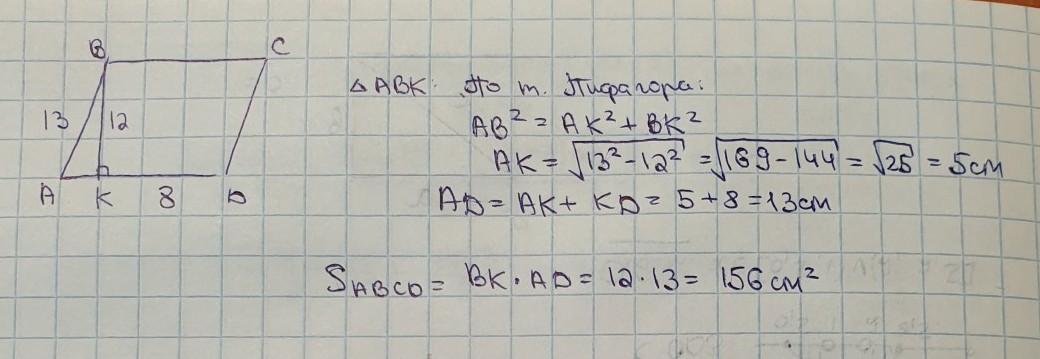 B C
△ABK: По т. Пифагора:
13 12
AB² = AK² + BK²
AK = √13²-12² = √169-144 = √25 = 5см
A K 8 D
AD = AK + KD = 5 + 8 = 13см
S ABCD = BK · AD = 12 · 13 = 156 см²